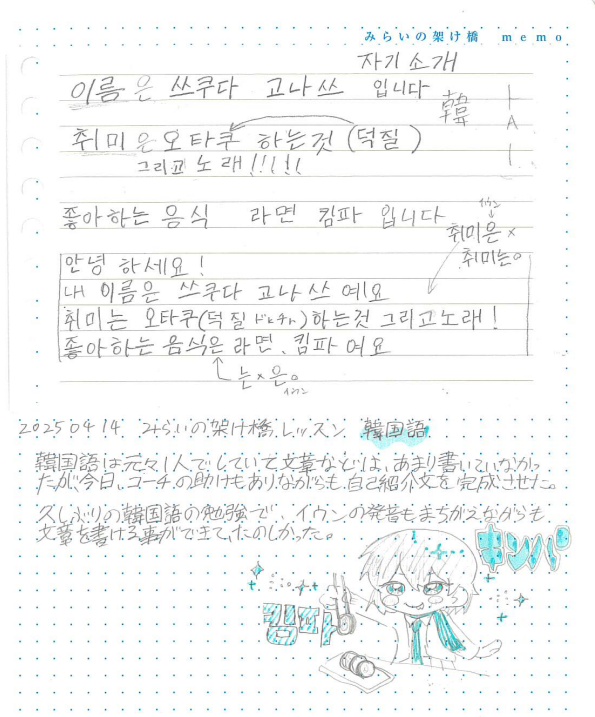 みらいの架け橋 memo
자기소개
이름은 쓰쿠다 고나쓰 입니다
韓
취미은 오타쿠 하는것 (덕질)
그리고 노래!!!!!
좋아하는 음식 라면 킴파 입니다
취미은×
취미는○
안녕 하세요!
내 이름은 쓰쿠다 고나쓰 예요
취미는 오타쿠(덕질)하는것 그리고노래!
좋아하는 음식은 라면、킴파 여요
는×은○
20250414 みらいの架け橋レッスン 韓国語
韓国語は元々1人でしていて文章などは、あまり書いていなかっ
たが今日、コーチの助けもありながらも自己紹介文を完成させた。
久しぶりの韓国語の勉強で、イウンの発音もまちがえながらも
文章を書ける事ができてたのしかった。
キンパ
킴파